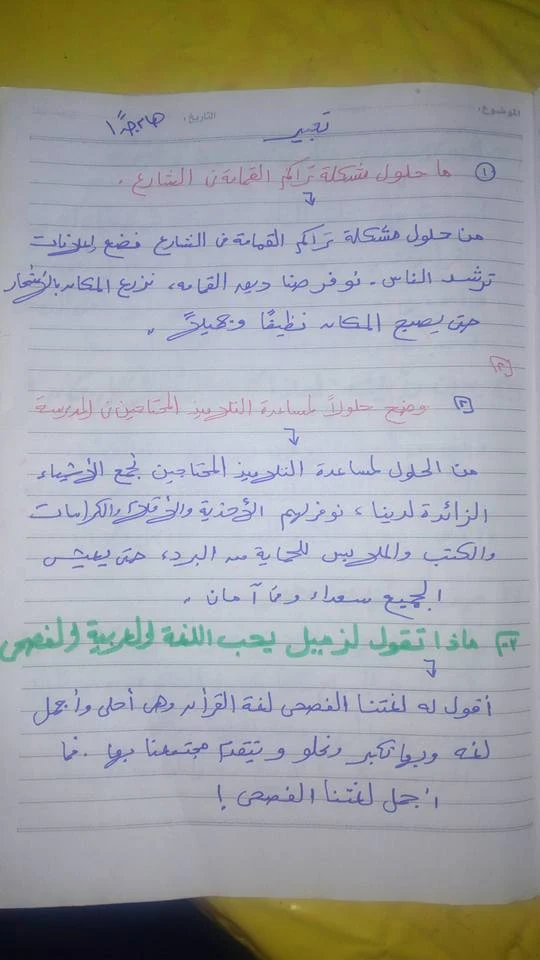 الموضوع:
التاريخ:
هام جدًا
تعبير
١ ما حلول مشكلة تراكم القمامة في الشارع.
من حلول مشكلة تراكم القمامة في الشارع نضع إعلانات
ترشد الناس. نوفر صناديق القمامه، نزرع المكان بالأشجار
حتى يصبح المكان نظيفًا وجميلاً.
[٢]
٢ وضح حلولاً لمساعدة التلاميذ المحتاجين في المدرسة
من الحلول لمساعدة التلاميذ المحتاجين نجمع الأشياء
الزائدة لدينا، نوفر لهم الأحذية والأقلام والكراسات
والكتب والملابس للحماية من البرد، حتى يعيش
الجميع سعداء وفي أمان.
ماذا تقول لزميل يحب اللغة العربية الفصحى
أقول له لغتنا الفصحى لغة القرآن وهى أحلى وأجمل
لغه وبها نكبر ونعلو ويتقدم مجتمعنا بها. فما
أجمل لغتنا الفصحى!